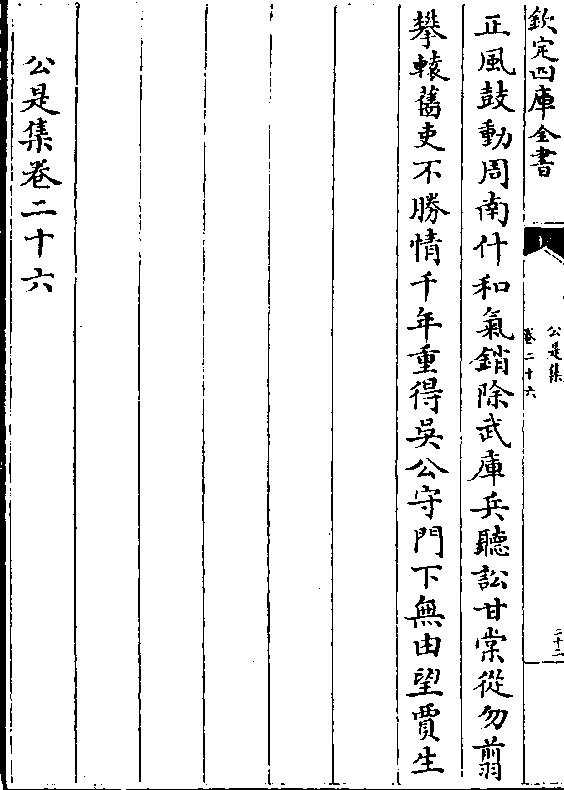 欽定四庫全書
公是集
卷二十六
二十二
正風鼓動周南什和氣銷除武庫兵聽訟甘棠從勿翦
攀轅舊吏不勝情千年重得吳公守門下無由望賈生
公是集卷二十六